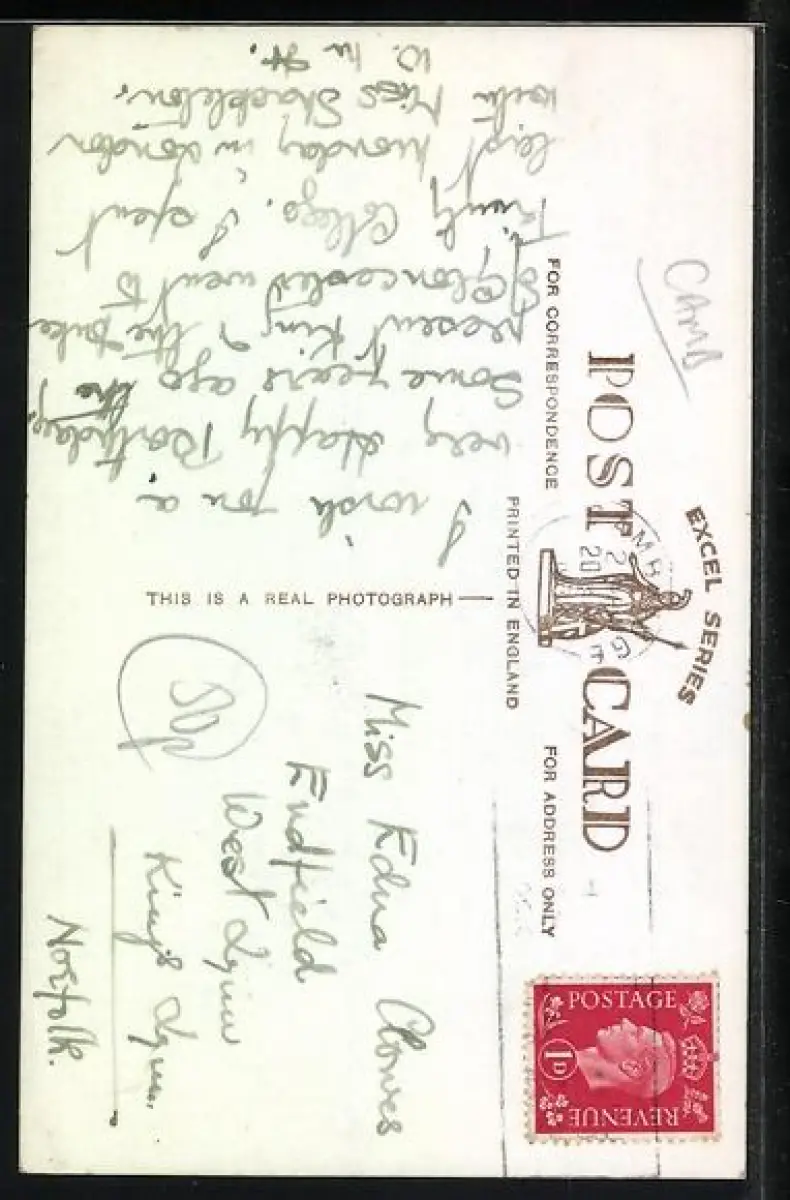 CAMB
EXCEL SERIES
POST CARD
FOR CORRESPONDENCE
PRINTED IN ENGLAND
FOR ADDRESS ONLY
THIS IS A REAL PHOTOGRAPH
I wish you a
very Happy Birthday,
Some years ago the
present King & the Duke
of Gloucester went to
Trinity College. I spent
last Monday in London
with Miss Stockleton.
W. M. H.
Miss Edna Clowes
Endfield
West Lynn
King's Lynn.
Norfolk.
POSTAGE
1D
REVENUE